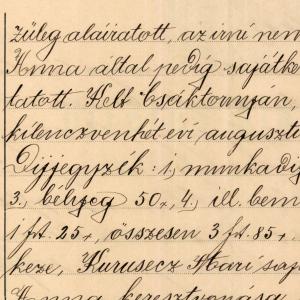 züleg aláiratott, az irni nem
Anna által pedig sajátke
tatott. Kelt Csáktornyán,
kilenczvenhét évi auguszti
Díjjegyzék: 1, munkadíj
3, bélyeg 50 x, 4, ill. bem
1 frt. 25 x, összesen 3 frt. 85 x.
keze, Kurusecz Mari saj
Anna keresztvonása